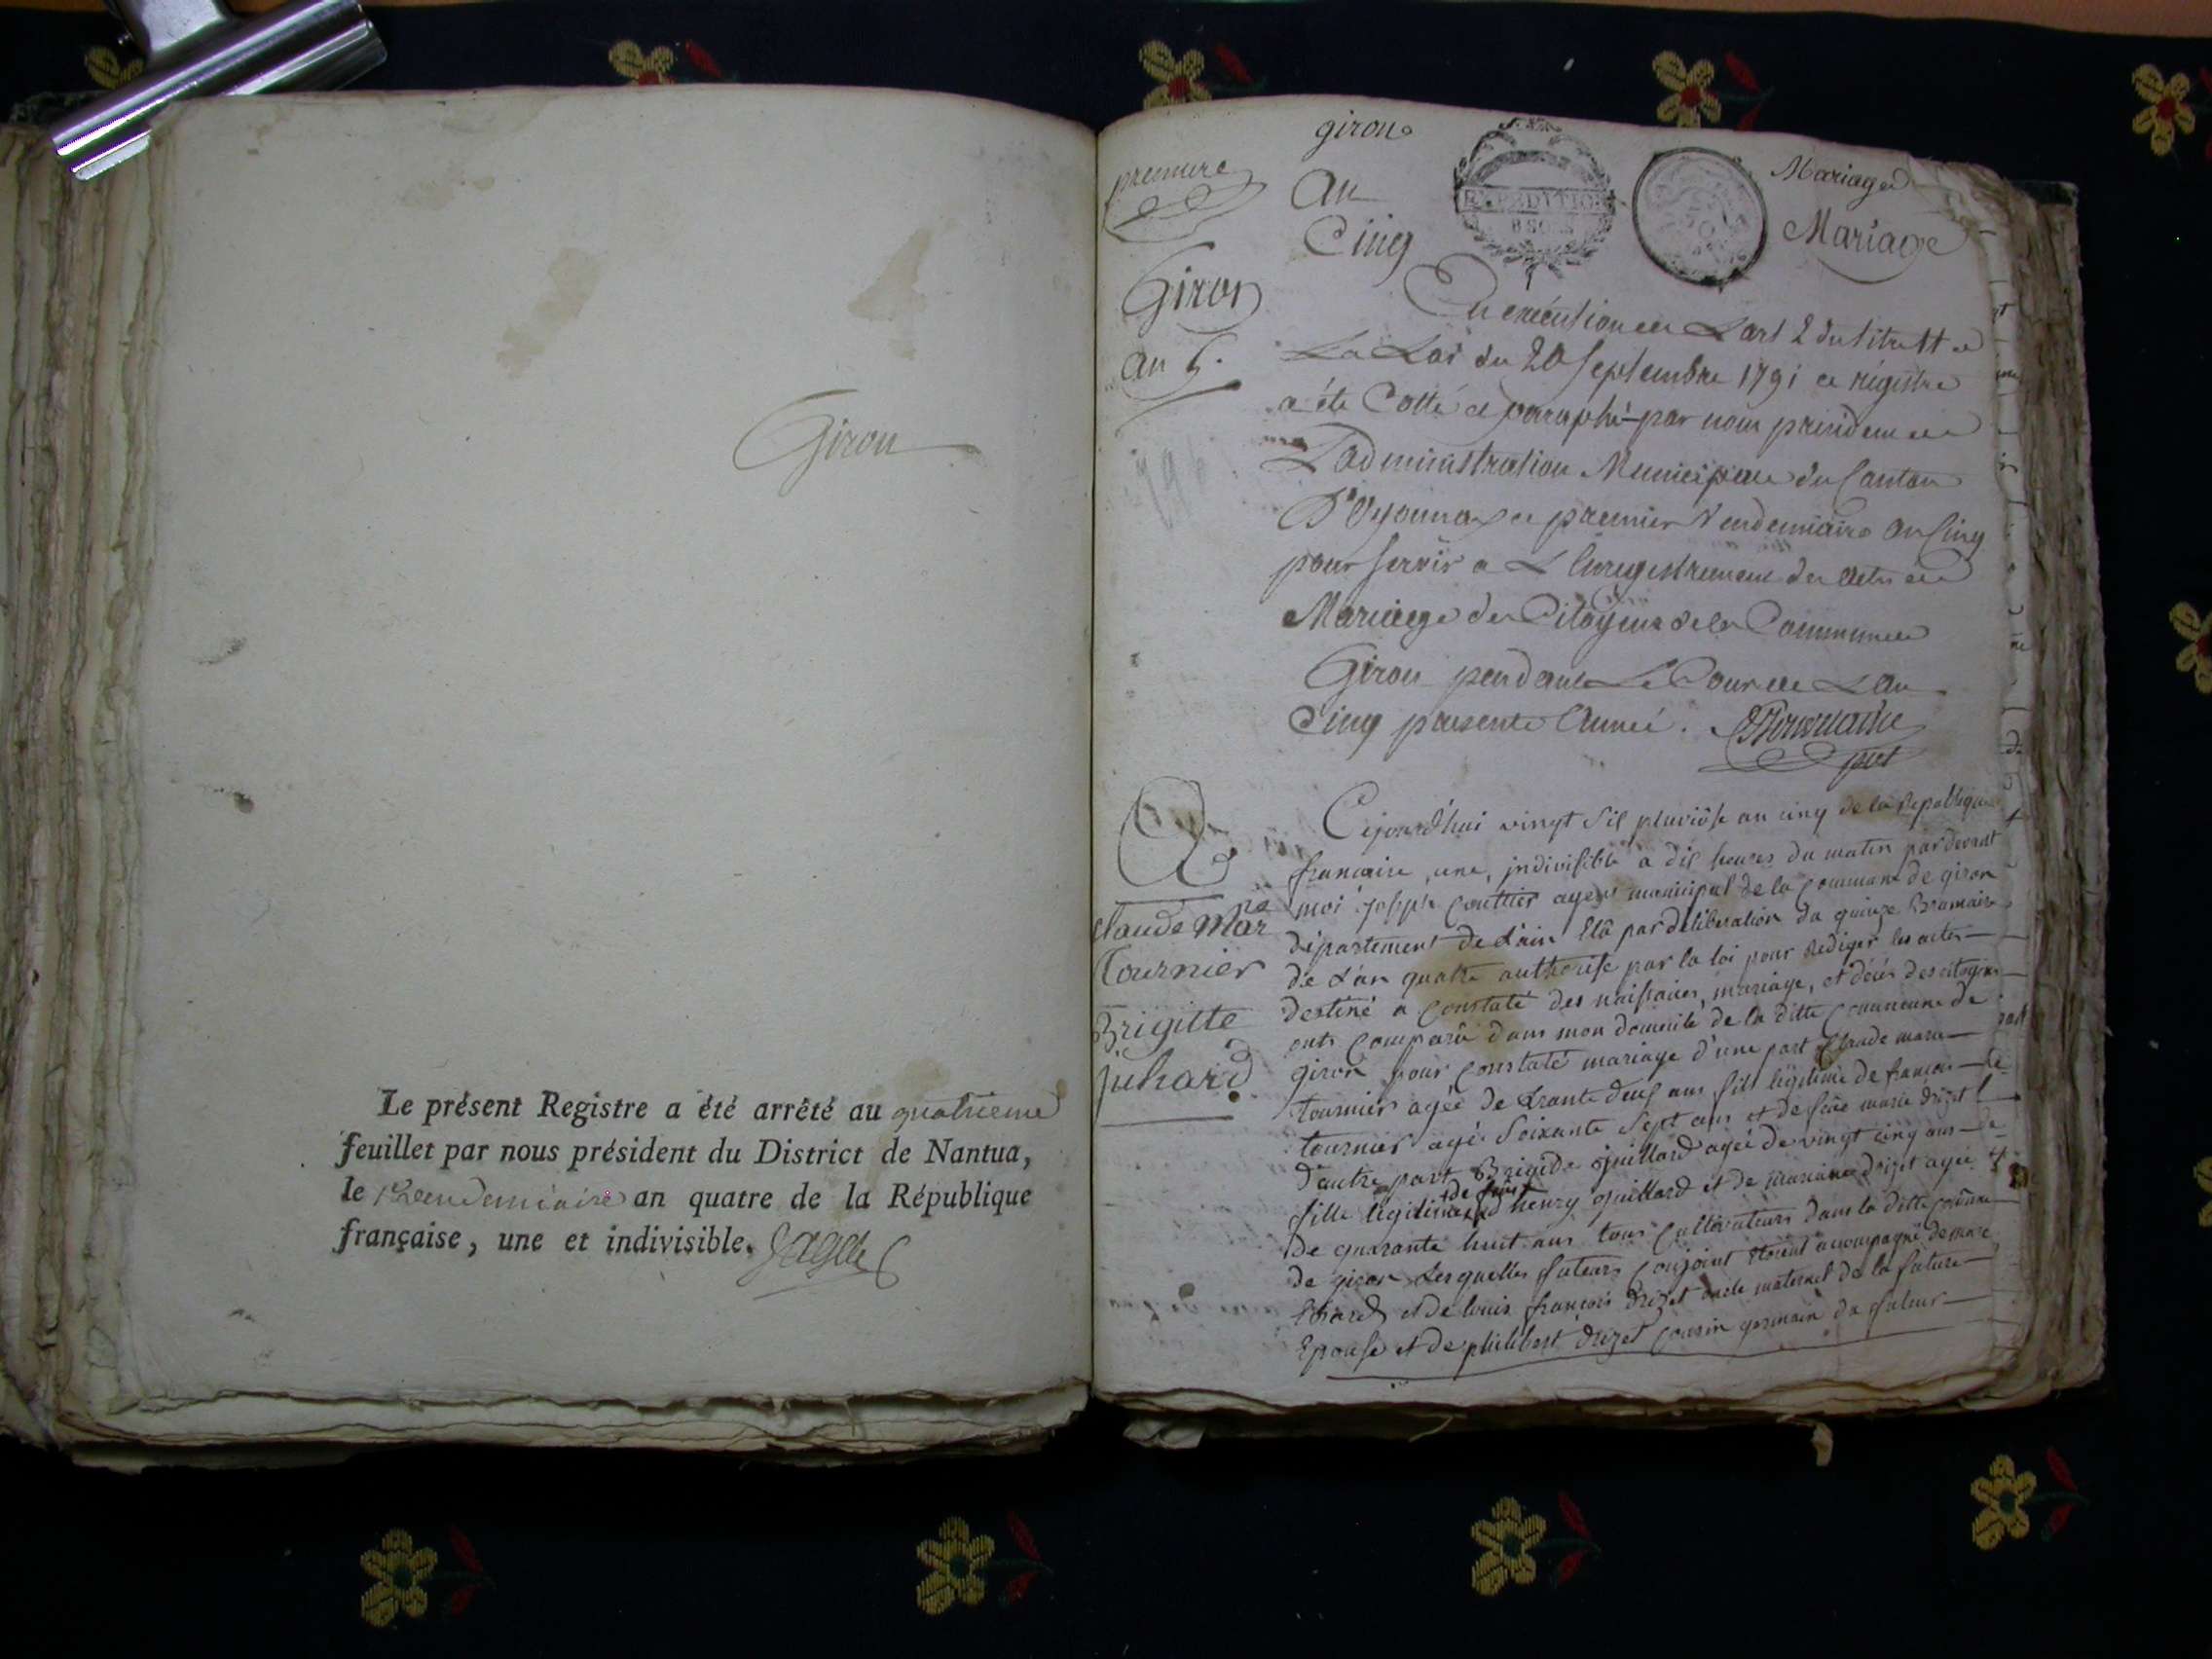 Giron
Le présent Registre a été arrêté au quatrieme
feuillet par nous président du District de Nantua,
le 1er vendemiaire an quatre de la République
française, une et indivisible.
giron
premiere
An
Cinq
EXPEDITION
Mariage
Mariage
Giron
an 5.
En exécution de L'art 2 du titre
La Loi du 20 Septembre 1791 ce régistre
a été Cotté et paraphé par nous président de
L'administration Municipale du Canton
D'Oyonnax ce premier Vendemiaire an Cinq
pour servir a L'Enregistrement des actes de
Mariage des Citoyens de la Commune de
Giron pendant Le Cour de L'an
Cinq presente Année.
pdt
Claude Marie
Tournier
Brigitte
juhard
Cejourd'hui vingt six pluviôse an cinq de la Republique
francaise, une, indivisible a dix heures du matin par devant
moi joseph Couttier agent municipal de la Commune de giron
département de L'ain Elû par deliberation du quinze Brumaire
de L'an quatre authorisé par la loi pour Rediger les actes
destiné a Constaté des naissances, mariage, et décés des citoyens
onts Comparûe dans mon domicile de la ditte Commune de
giron pour Constaté mariage d'une part Claude marie
tournier agée de trante deux ans fils légitime de francois
tournier agé Soixante Sept ans et de feüe marie drizet
d'autre part Brigide juillard agée de vingt cinq ans
fille legitime de feüe henry juillard et de mariane drizet agée
de quarante huit ans tous Cultivateurs dans la ditte Commune
de giron Lesquelles futeurs Conjoint Etoient acompagné de marc
Evrard et de louis françois Drizet oncle maternel de la future
Epouse et de philibert drizet Cousin germain du futeur